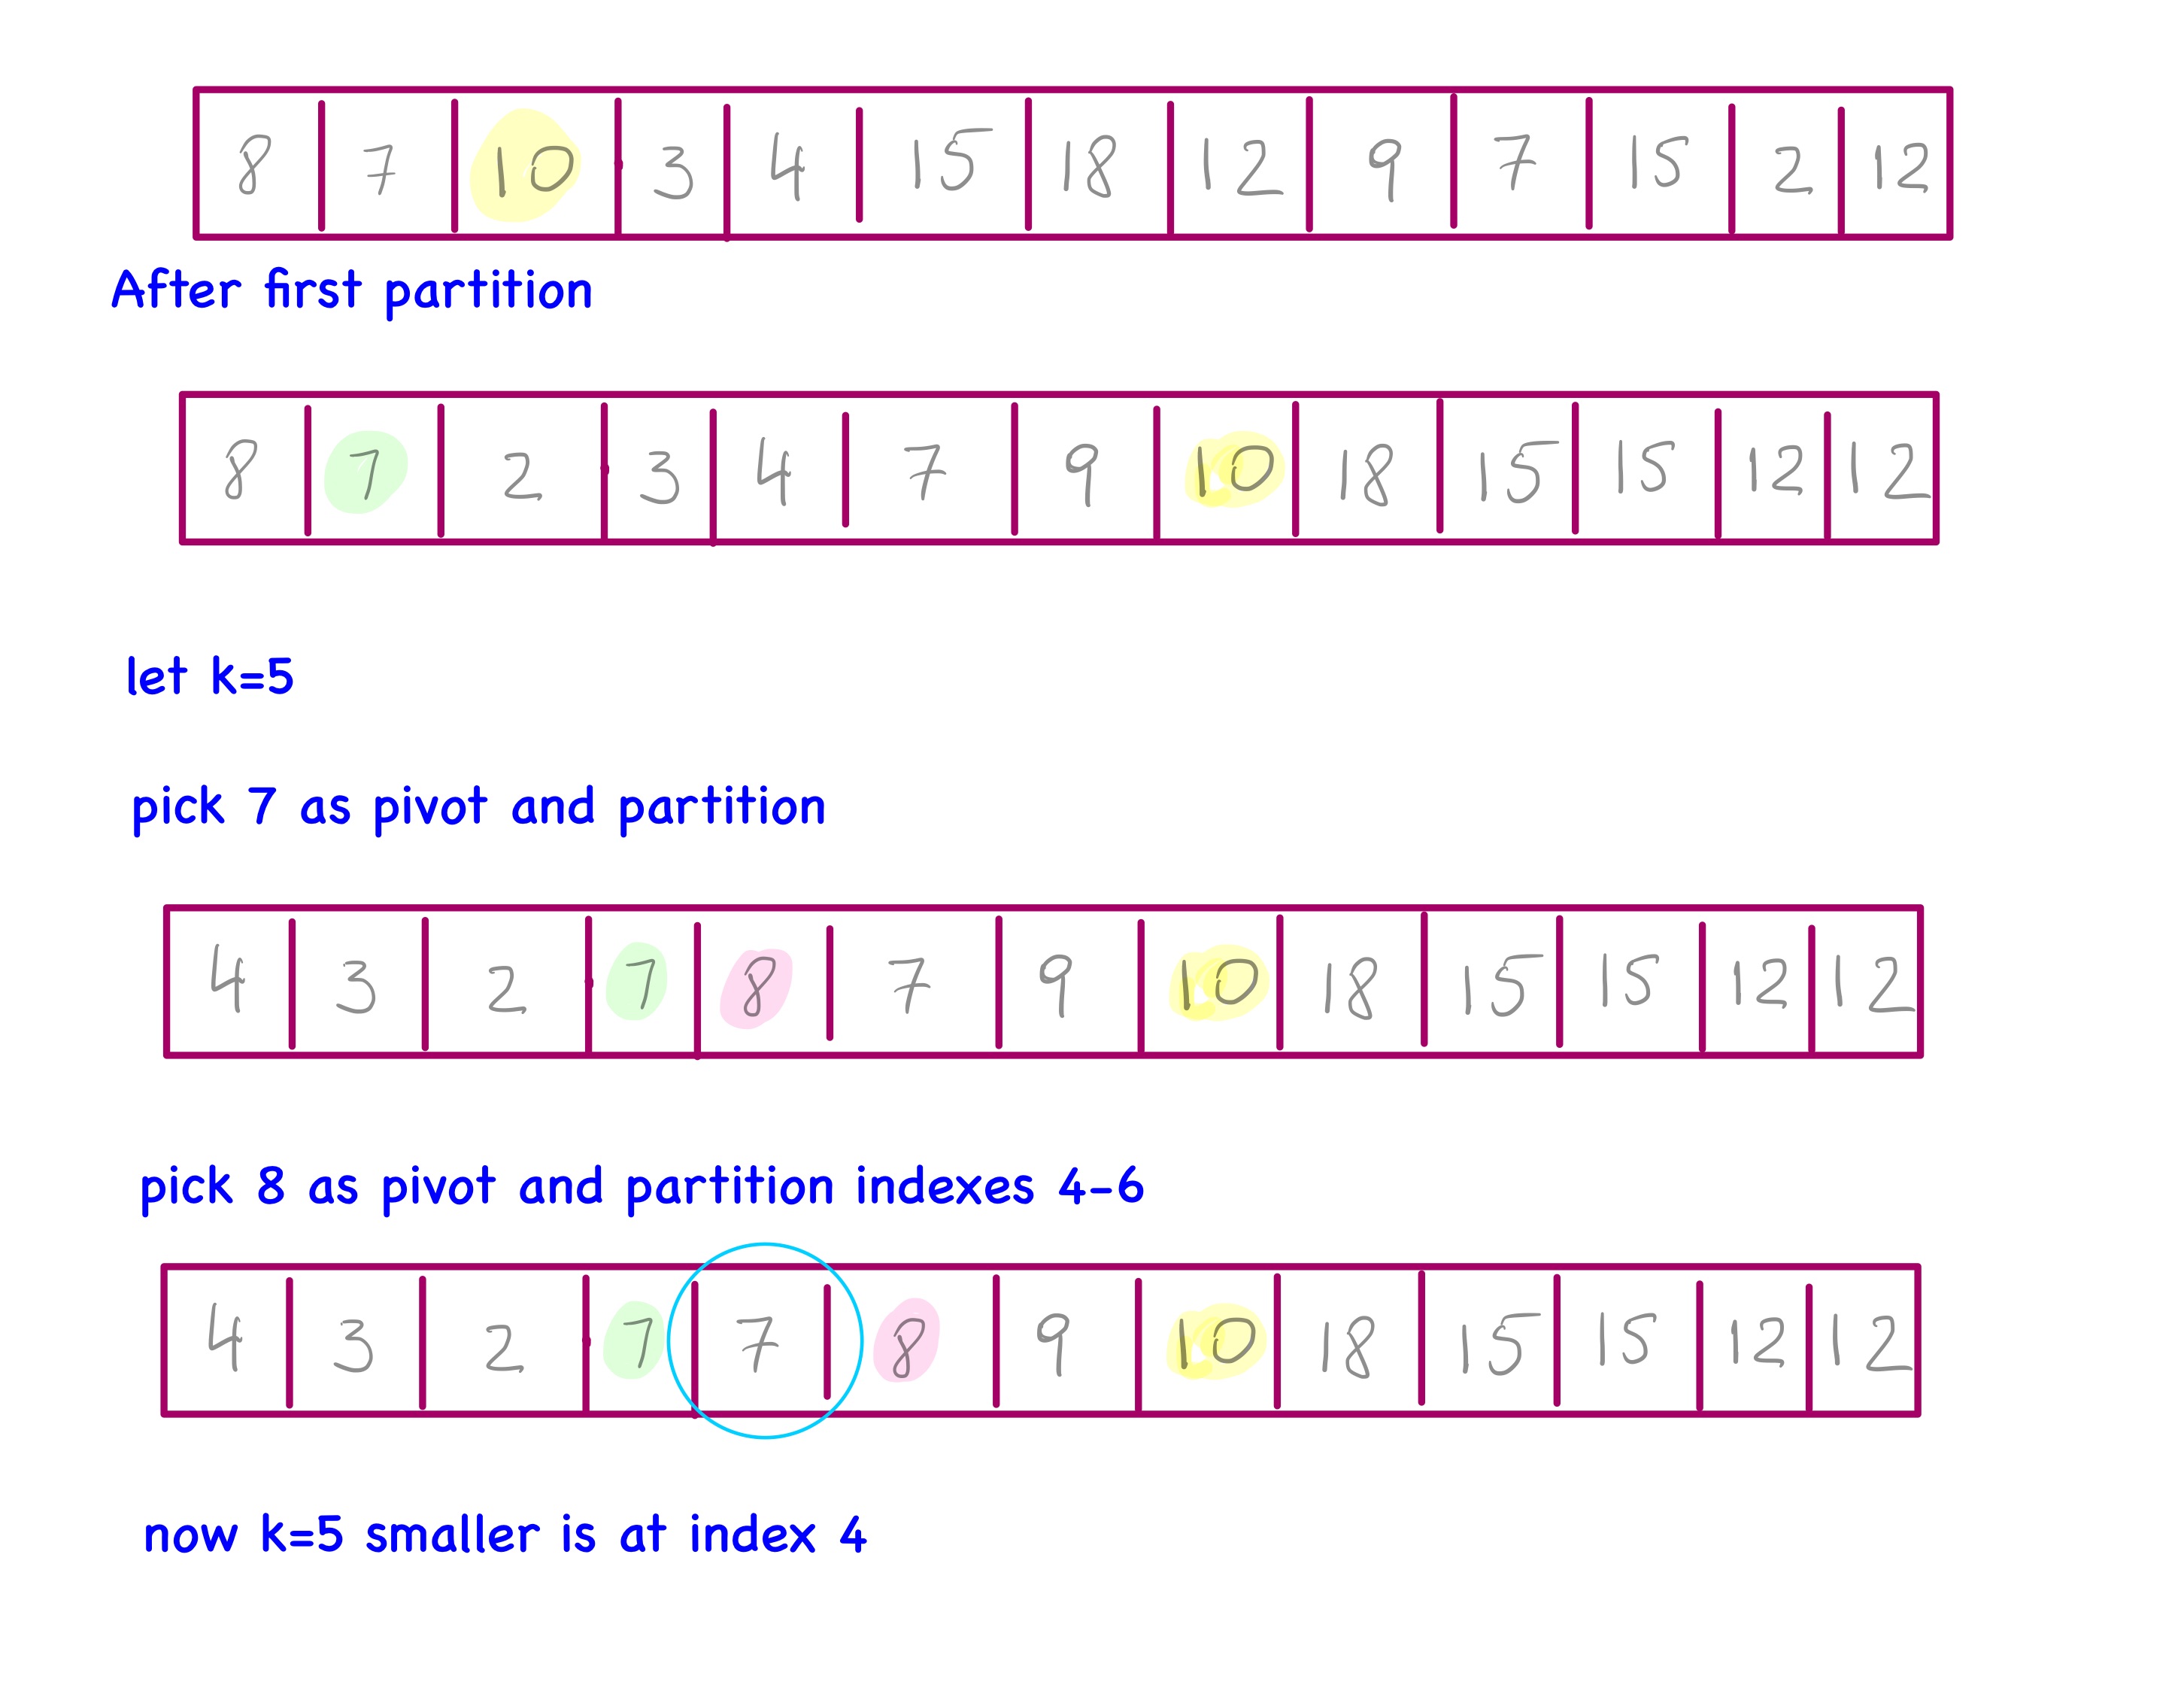 8 7 10 3 4 15 18 12 9 7 15 2 12
After first partition
8 7 2 3 4 7 9 10 18 15 15 12 12
let k=5
pick 7 as pivot and partition
4 3 2 7 8 7 9 10 18 15 15 12 12
pick 8 as pivot and partition indexes 4-6
4 3 2 7 7 8 9 10 18 15 15 12 12
now k=5 smaller is at index 4